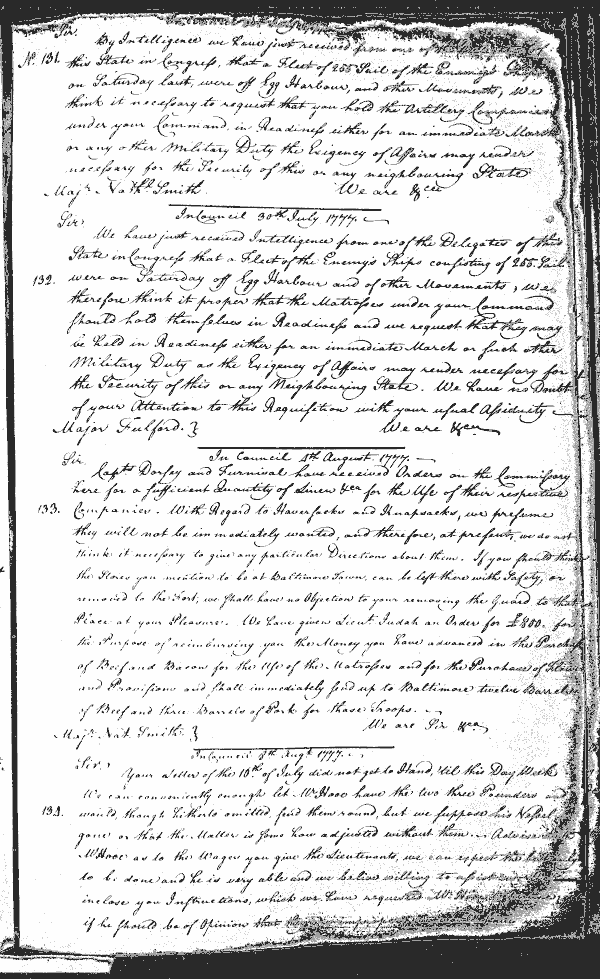 In Council
Sir.
By Intelligence we have just received from one of the
No. 131. this State in Congress, that a Fleet of 255 Sail of the Enemy's Ships
on Saturday last, were off Egg Harbour, and other Movements, We
think it necessary to request that you hold the Artillery Companies
under your Command in Readiness either for an immediate March
or any other Military Duty the Exigency of Affairs may render
necessary for the Security of this or any neighbouring State
Majr. Nathl. Smith. We are &ca
In Council 30th July 1777.
Sir
We have just received Intelligence from one of the Delegates of this
State in Congress that a Fleet of the Enemy's Ships consisting of 255 Sail
132. were on Saturday off Egg Harbour and of other Movements, we
therefore think it proper that the Matrosses under your Command
should hold themselves in Readiness and we request that they may
be held in Readiness either for an immediate March or such other
Military Duty as the Exigency of Affairs may render necessary for
the Security of this or any Neighbouring State. We have no Doubt
of your Attention to this Requisition with your usual Assiduity
Major Fulford. } We are &ca
In Council 4th August 1777.
Sir
Capts Dorsey and Furnival have received Orders on the Commissary
here for a sufficient Quantity of Linen &ca for the Use of their respective
133. Companies. With Regard to Haversacks and Knapsacks, we presume
they will not be immediately wanted, and therefore, at present, we do not
think it necessary to give any particular Directions about them. If you should think
the Stores you mention to be at Baltimore Town, can be left there with Safety, or
removed to the Fort, we shall have no Objection to your removing the Guard to that
Place at your Pleasure. We have given Lieut. Judah an Order for £800. for
the Purpose of reimbursing you the Money you have advanced in the Purchase
of Beef and Bacon for the Use of the Matrosses and for the Purchase of
and Provisions and shall immediately send up to Baltimore twelve Barrels
of Beef and three Barrels of Pork for those Troops.
Majr. Nat. Smith. } We are Sir &ca
In Council 8th Augt. 1777.
Sir.
Your Letter of the 15th of July did not get to Hand, 'til this Day Week
We can conveniently enough let Mr Hooe have the two three Pounders and
134. would, though hitherto omitted, send them round, but we suppose his Vessel
gone or that the Matter is some how adjusted without them.
Mr Hooe as to the Wages you give the Lieutenants, we can expect the
to be done and he is very able and we believe willing to assist
inclose you Instructions, which we have requested Mr
if he should be of Opinion that the